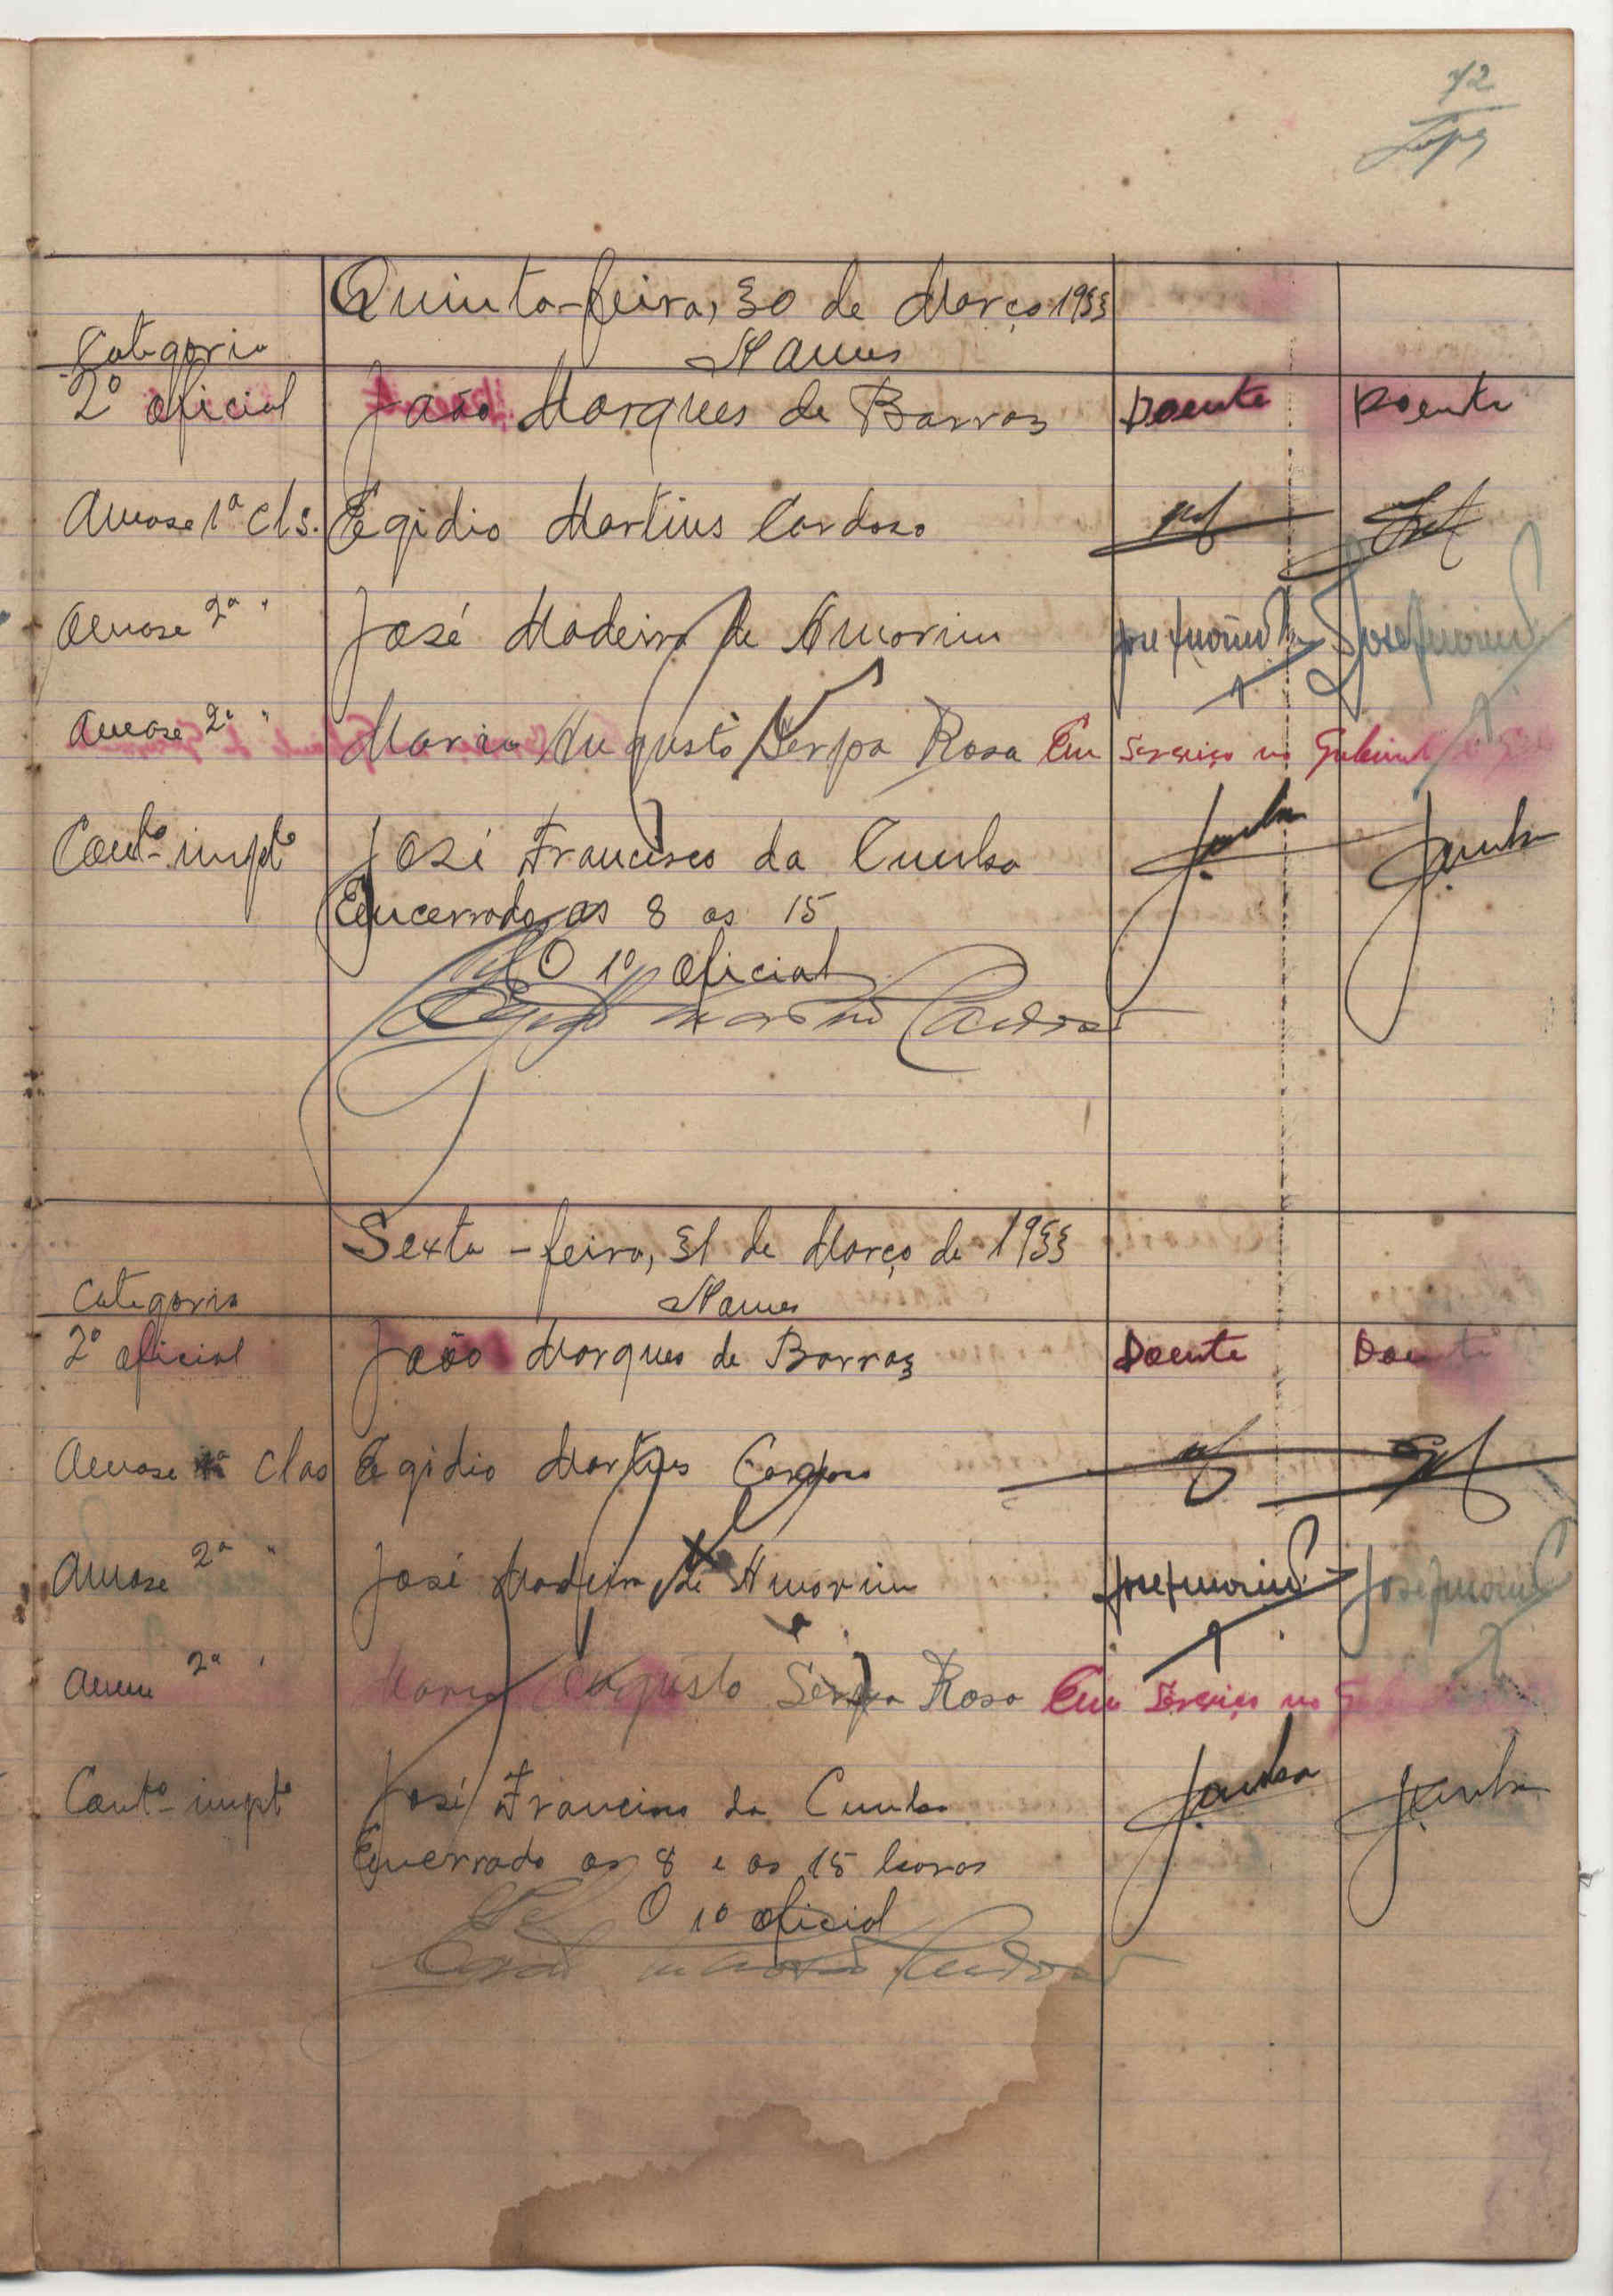 72
Lopes
Quinta-feira, 30 de Março 1933
Categoria Nomes
2º oficial João Marques de Barros Doente Doente
1ª cls. Egidio Martins Cardoso
2ª " José Madeira de Amorim José Amorim José Amorim
2ª " Maria Augusto Serpa Rosa Em serviço no Gabinete
Contº impto José Francisco da Cunha JCunha JCunha
Encerrado as 8 as 15
O 1º oficial
Egidio Martins Cardoso
Sexta-feira, 31 de Março de 1933
Categoria Nomes
2º oficial João Marques de Barros Doente Doente
1ª clas Egidio Martins Cardoso
2ª " José Madeira de Amorim José Amorim José Amorim
2ª " Maria Augusto Serpa Rosa Em serviço no
Contº impto José Francisco da Cunha JCunha JCunha
Encerrado as 8 e as 15 horas
O 1º oficial
Egidio Martins Cardoso